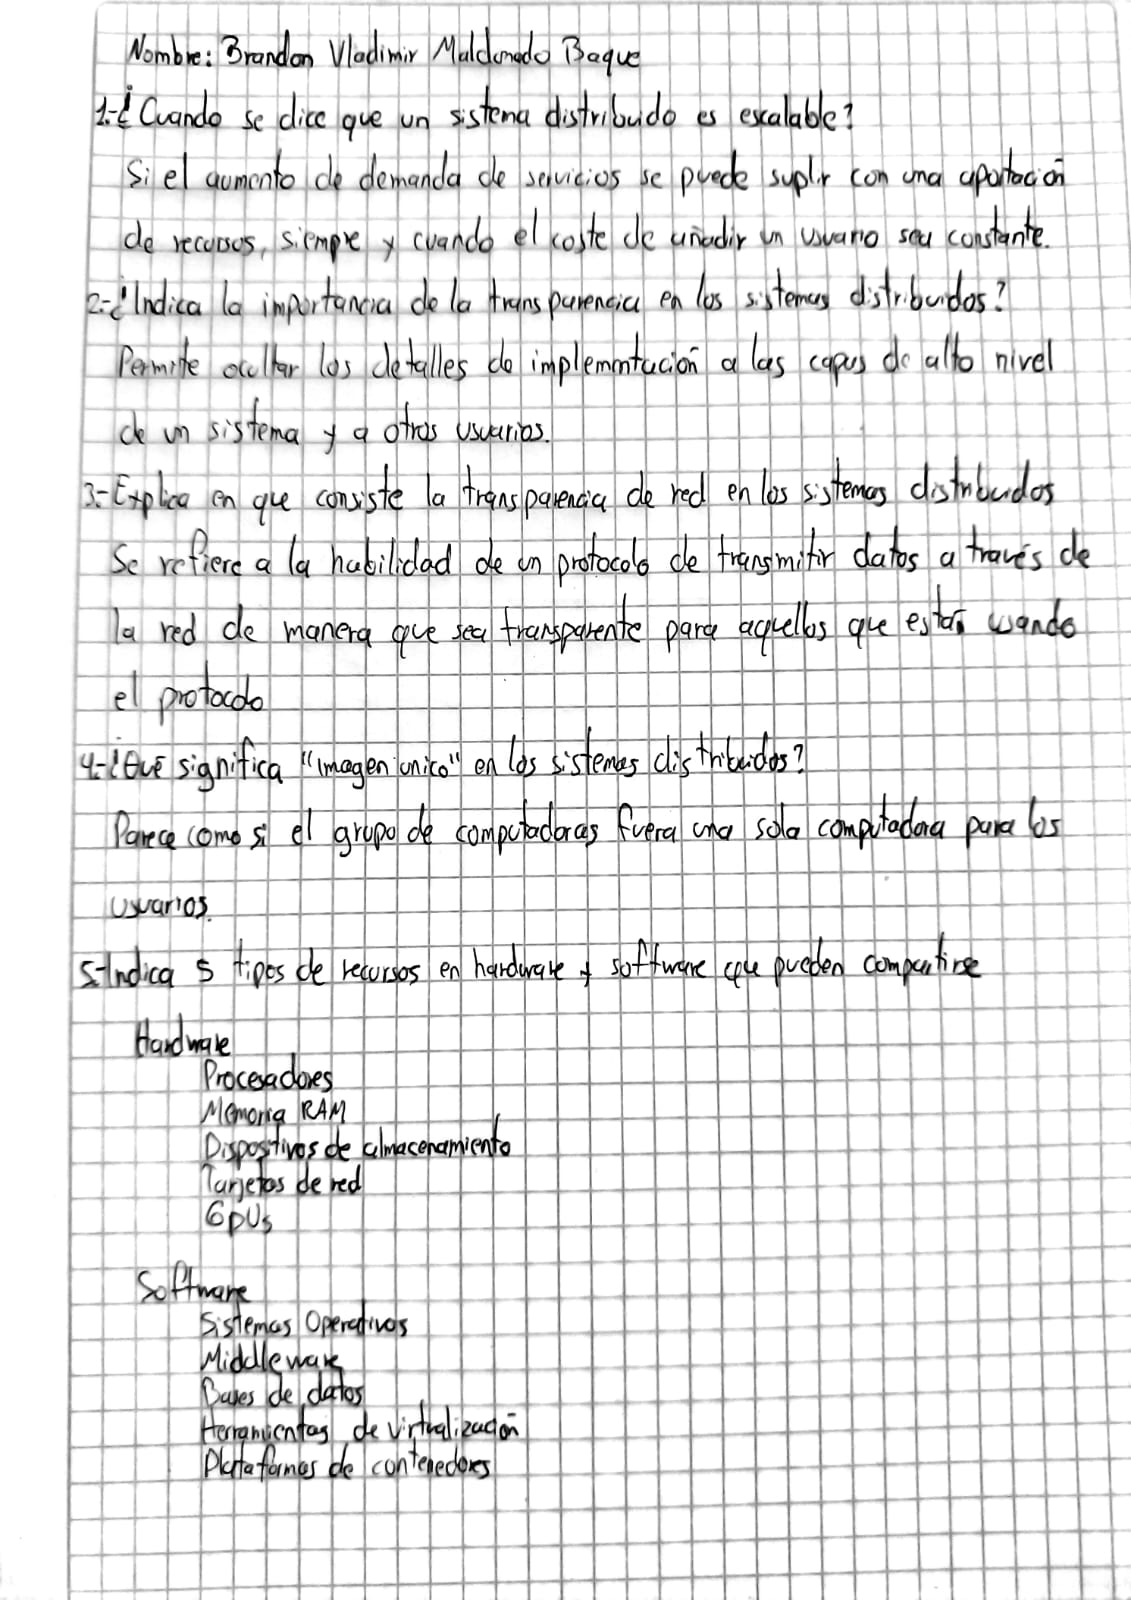 Nombre: Brandon Vladimir Maldonado Baque
1.-¿Cuando se dice que un sistema distribuido es escalable?
Si el aumento de demanda de servicios se puede suplir con una aportación
de recursos, siempre y cuando el coste de añadir un usuario sea constante.
2.-¿Indica la importancia de la transparencia en los sistemas distribuidos?
Permite ocultar los detalles de implemntación a las capas de alto nivel
de un sistema y a otros usuarios.
3.-Explica en que consiste la transparencia de red en los sistemas distribuidos
Se refiere a la habilidad de un protocolo de transmitir datos a través de
la red de manera que sea transparente para aquellos que están usando
el protocolo
4.-¿Qué significa "imagen unico" en los sistemas distribuidos?
Parece como si el grupo de computadoras fuera una sola computadora para los
usuarios.
5.-Indica 5 tipos de recursos en hardware y software que pueden compartirse
Hardware
Procesadores
Memoria RAM
Dispositivos de almacenamiento
Tarjetas de red
GPUs
Software
Sistemas Operativos
Middleware
Bases de datos
Herramientas de virtualización
Plataformas de contenedores